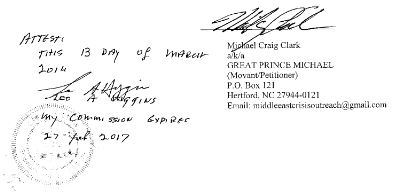 ATTEST:
THIS 13 DAY of MARCH
2014
Leo A Higgins
LEO A HIGGINS
MY COMMISSION EXPIRES
27 Feb 2017
Michael Craig Clark
a/k/a
GREAT PRINCE MICHAEL
(Movant/Petitioner)
P.O. Box 121
Hertford, NC 27944-0121
Email: middleeastcrisisoutreach@gmail.com